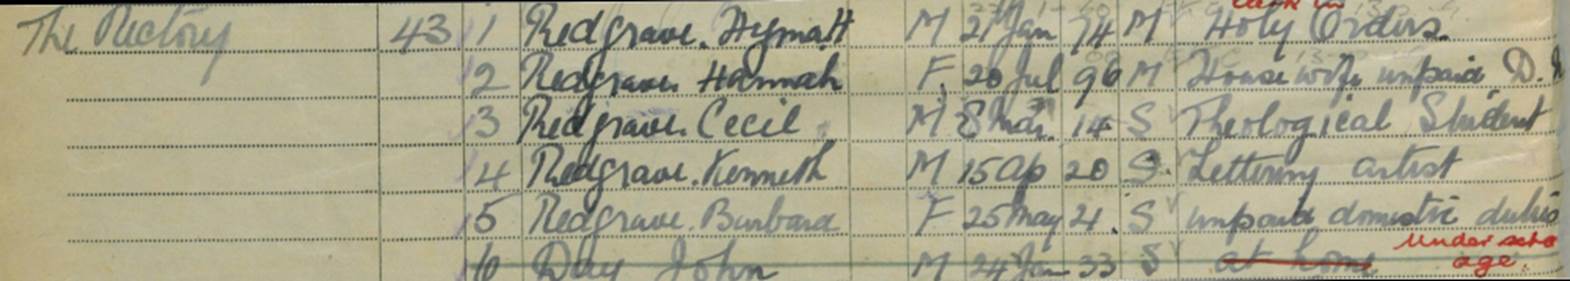 Clerk in
The Rectory 43 1 Redgrave. Hyma H M 21 Jan 74 M Holy Orders.
2 Redgrave. Hannah F. 20 Jul 96 M Housewife unpaid D.
3 Redgrave. Cecil M 8 Mar. 14 S Theological Student
4 Redgrave. Kenneth M 15 Ap 20 S. Lettering artist
5 Redgrave. Barbara F 25 May 21. S unpaid domestic duties
under scho
6 Day John M 24 Jan 33 S at home age.